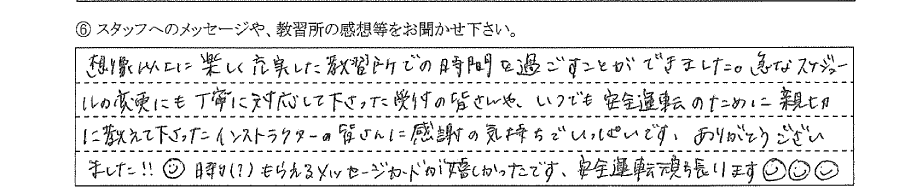 ⑥ スタッフへのメッセージや、教習所の感想等をお聞かせ下さい。
想像以上に楽しく充実した教習所での時間を過ごすことができました。急なスケジュー
ルの変更にも丁寧に対応して下さった受付の皆さんや、いつでも安全運転のために親切
に教えて下さったインストラクターの皆さんに感謝の気持ちでいっぱいです、ありがとうござい
ました!! ☺ 時々(?)もらえるメッセージカードが嬉しかったです、安全運転頑張ります☺☺☺